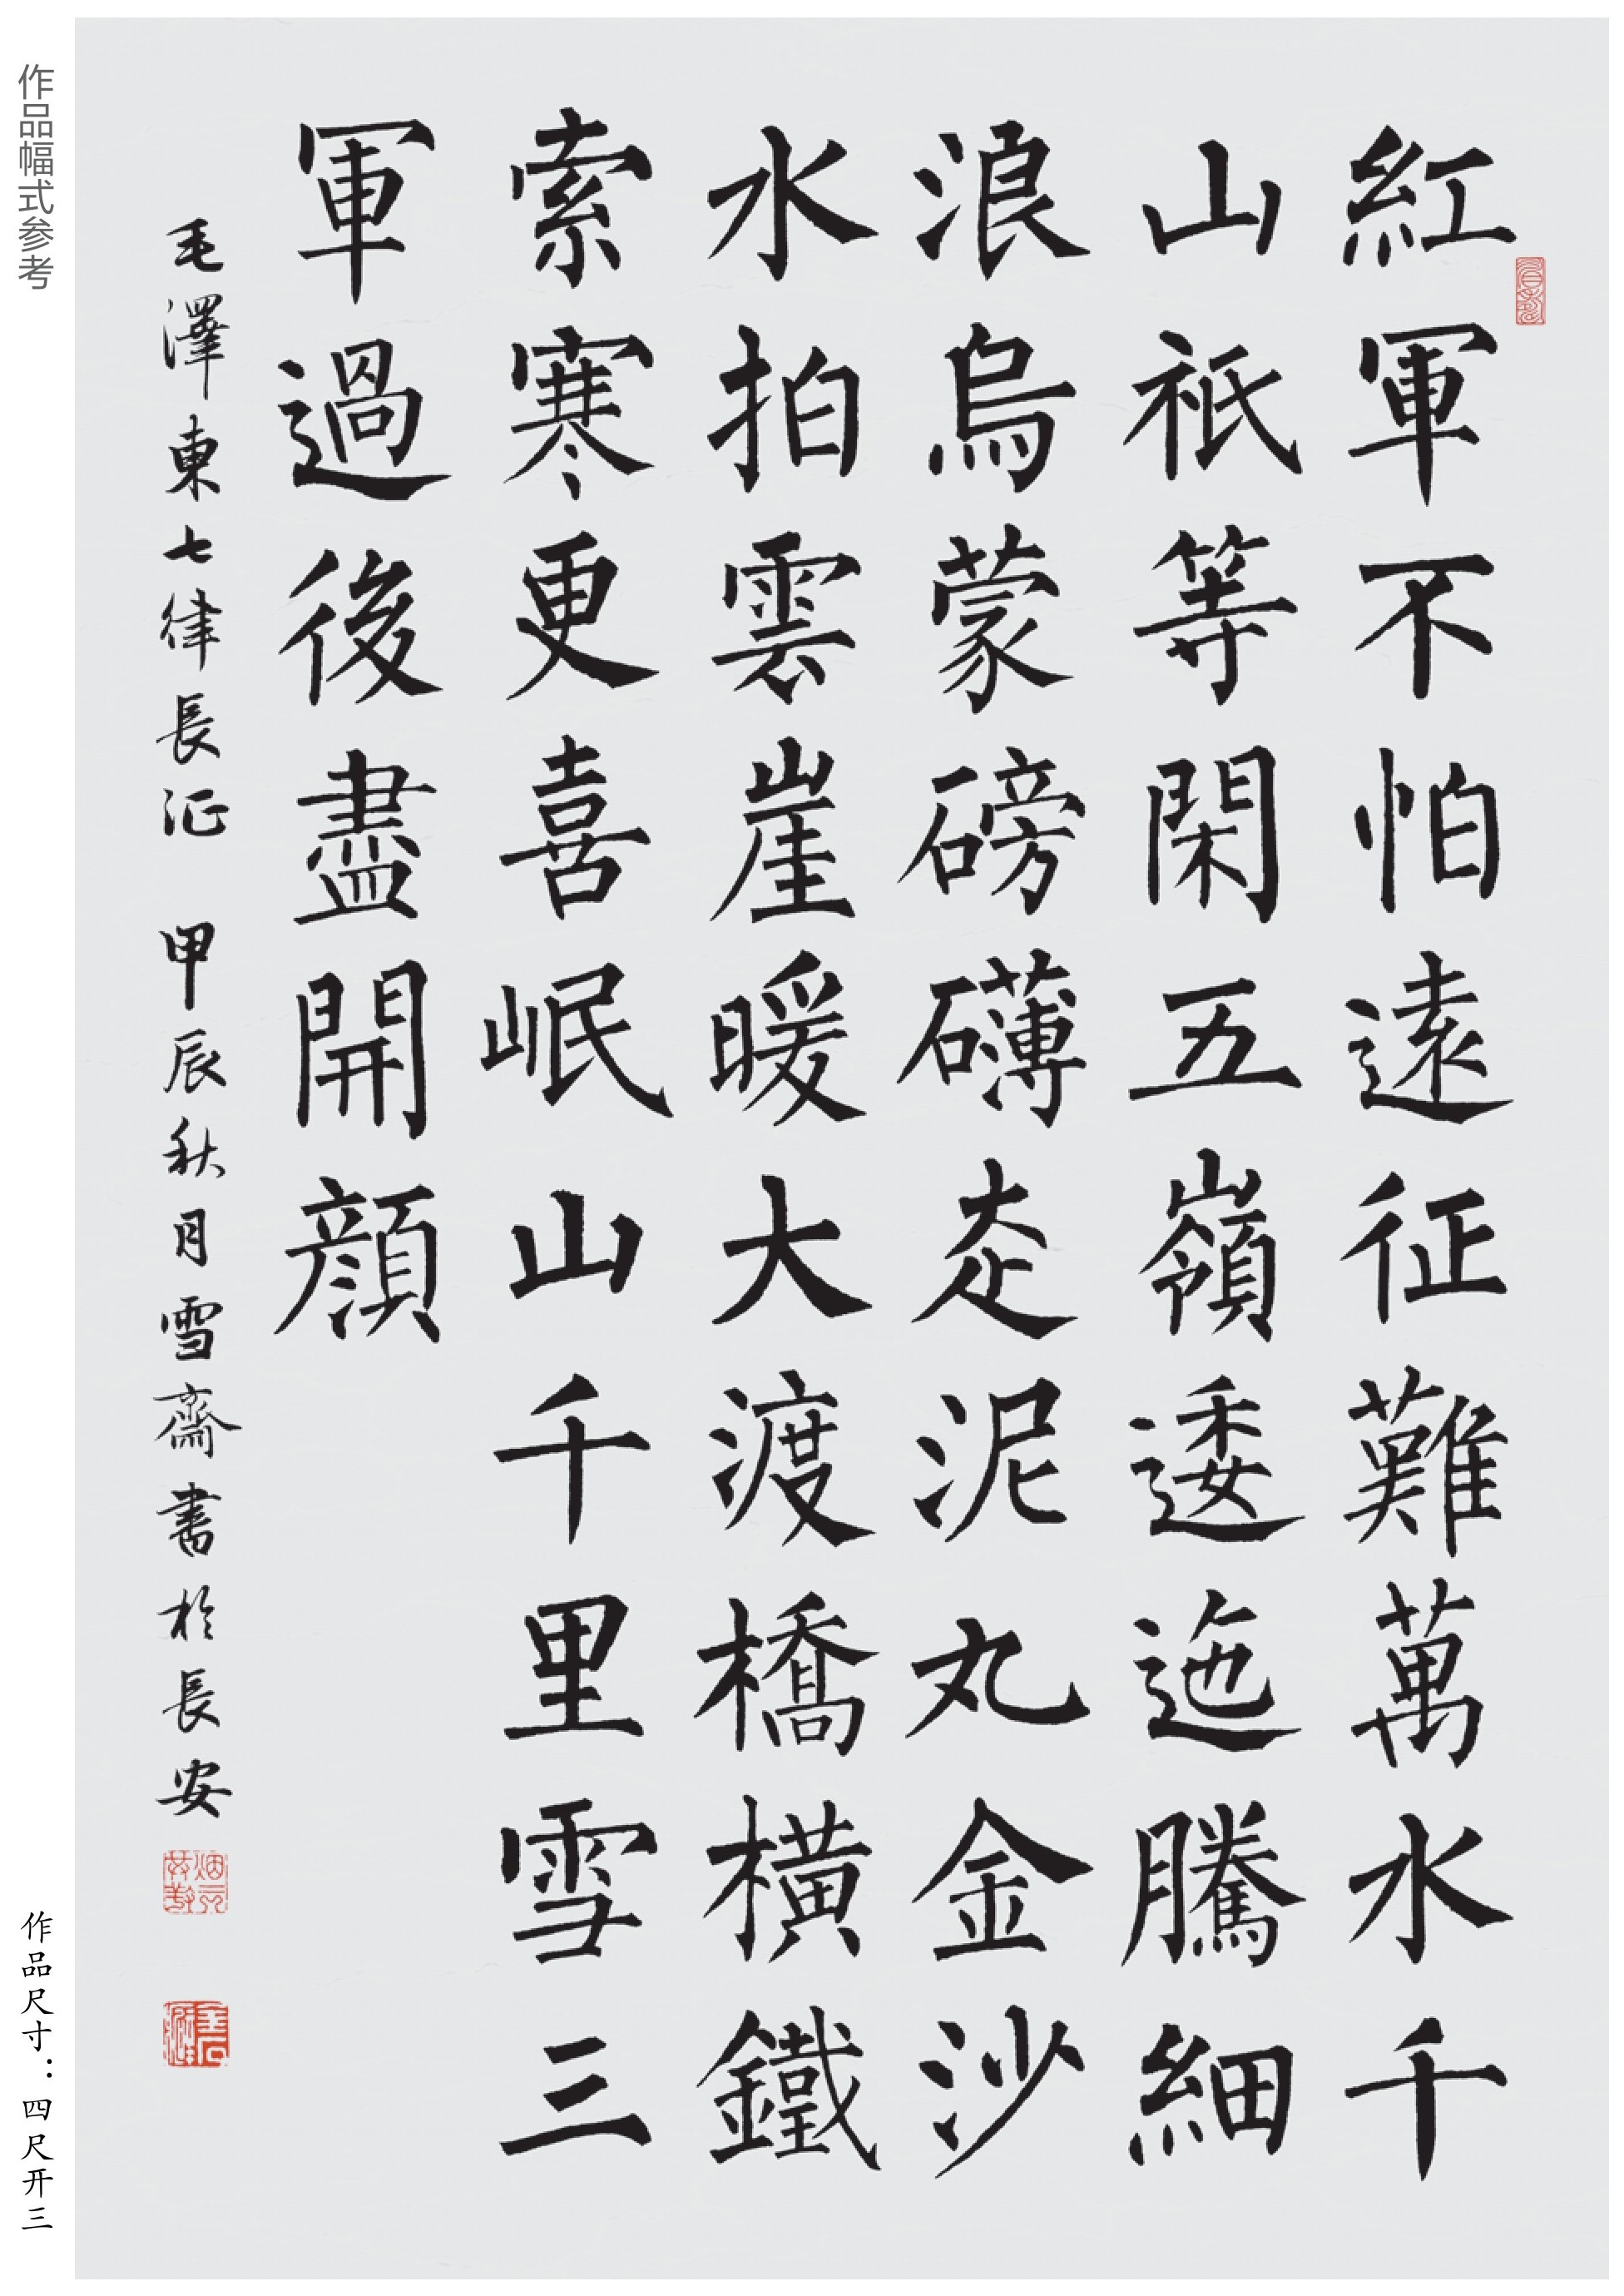 作品幅式参考
紅軍不怕遠征難萬水千
山祇等閑五嶺逶迤騰細
浪烏蒙磅礴走泥丸金沙
水拍雲崖暖大渡橋橫鐵
索寒更喜岷山千里雪三
軍過後盡開顏
毛澤東七律長征 甲辰秋月雪齋書於長安
作品尺寸：四尺开三